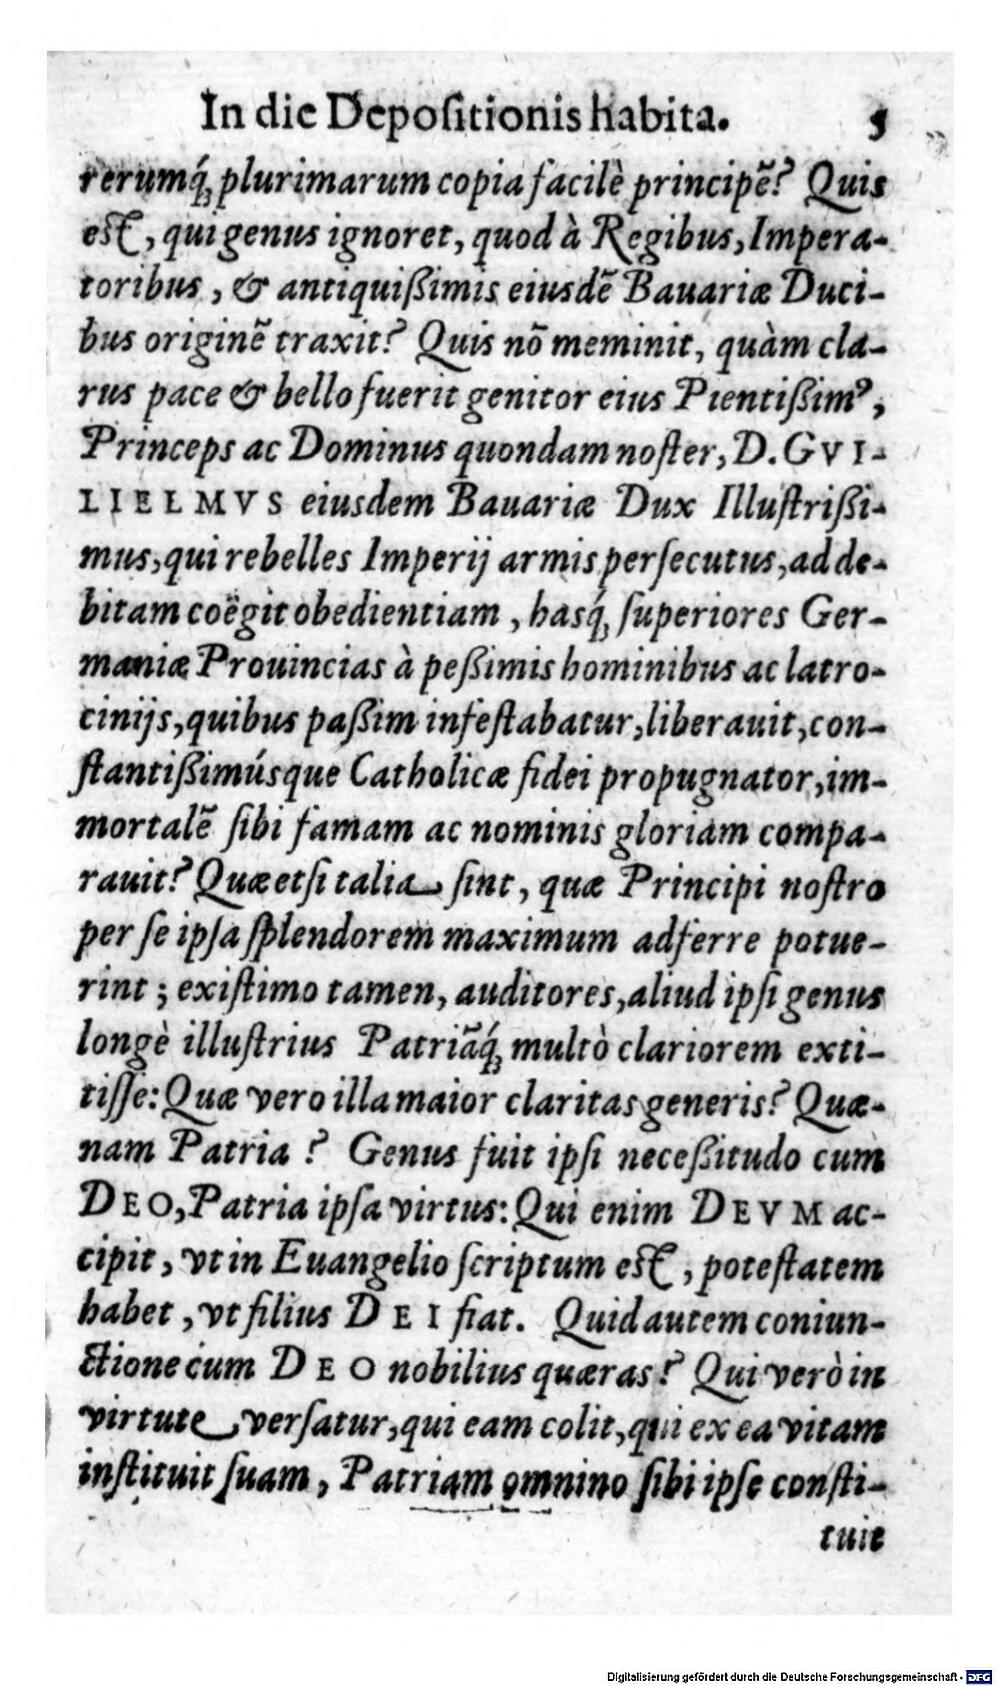 In die Depoſitionis habita. 5
rerumq́; plurimarum copia facilè principẽ? Quis
eſt, qui genus ignoret, quod à Regibus, Impera-
toribus, & antiquiſſimis eiusdẽ Bauariæ Duci-
bus originẽ traxit? Quis nõ meminit, quàm cla-
rus pace & bello fuerit genitor eius Pientiſſimꝰ,
Princeps ac Dominus quondam noſter, D. GVI-
LIELMVS eiusdem Bauariæ Dux Illuſtriſſi-
mus, qui rebelles Imperij armis perſecutus, ad de-
bitam coëgit obedientiam, hasq́; ſuperiores Ger-
maniæ Prouincias à peſſimis hominibus ac latro-
cinijs, quibus paſſim infeſtabatur, liberauit, con-
ſtantiſſimúsque Catholicæ fidei propugnator, im-
mortalẽ ſibi famam ac nominis gloriam compa-
rauit? Quæ etſi talia ſint, quæ Principi noſtro
per ſe ipſa ſplendorem maximum adferre potue-
rint; exiſtimo tamen, auditores, aliud ipſi genus
longè illuſtrius Patriãq́; multò clariorem exti-
tiſſe: Quæ vero illa maior claritas generis? Quæ-
nam Patria? Genus fuit ipſi neceſſitudo cum
DEO, Patria ipſa virtus: Qui enim DEVM ac-
cipit, vt in Euangelio ſcriptum eſt, poteſtatem
habet, vt filius DEI fiat. Quid autem coniun-
ctione cum DEO nobilius quæras? Qui verò in
virtute verſatur, qui eam colit, qui ex ea vitam
inſtituit ſuam, Patriam omnino ſibi ipſe conſti-
tuit
Digitalisierung gefördert durch die Deutsche Forschungsgemeinschaft - DFG